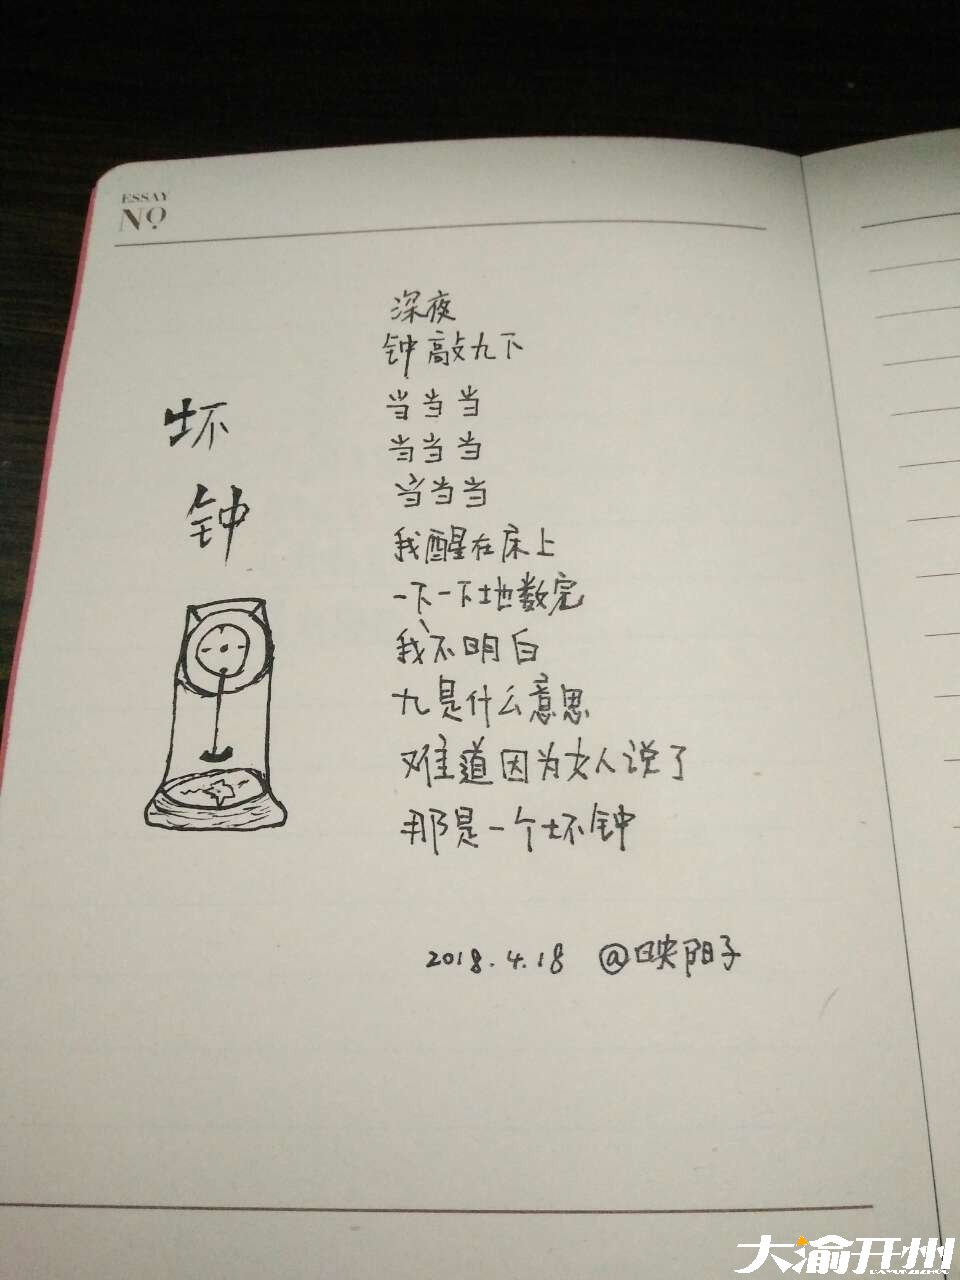 ESSAY
NO
坏
钟
深夜
钟敲九下
当当当
当当当
当当当
我醒在床上
一下一下地数完
我不明白
九是什么意思
难道因为女人说了
那是一个坏钟
2018.4.18 @映阳子
大渝开州